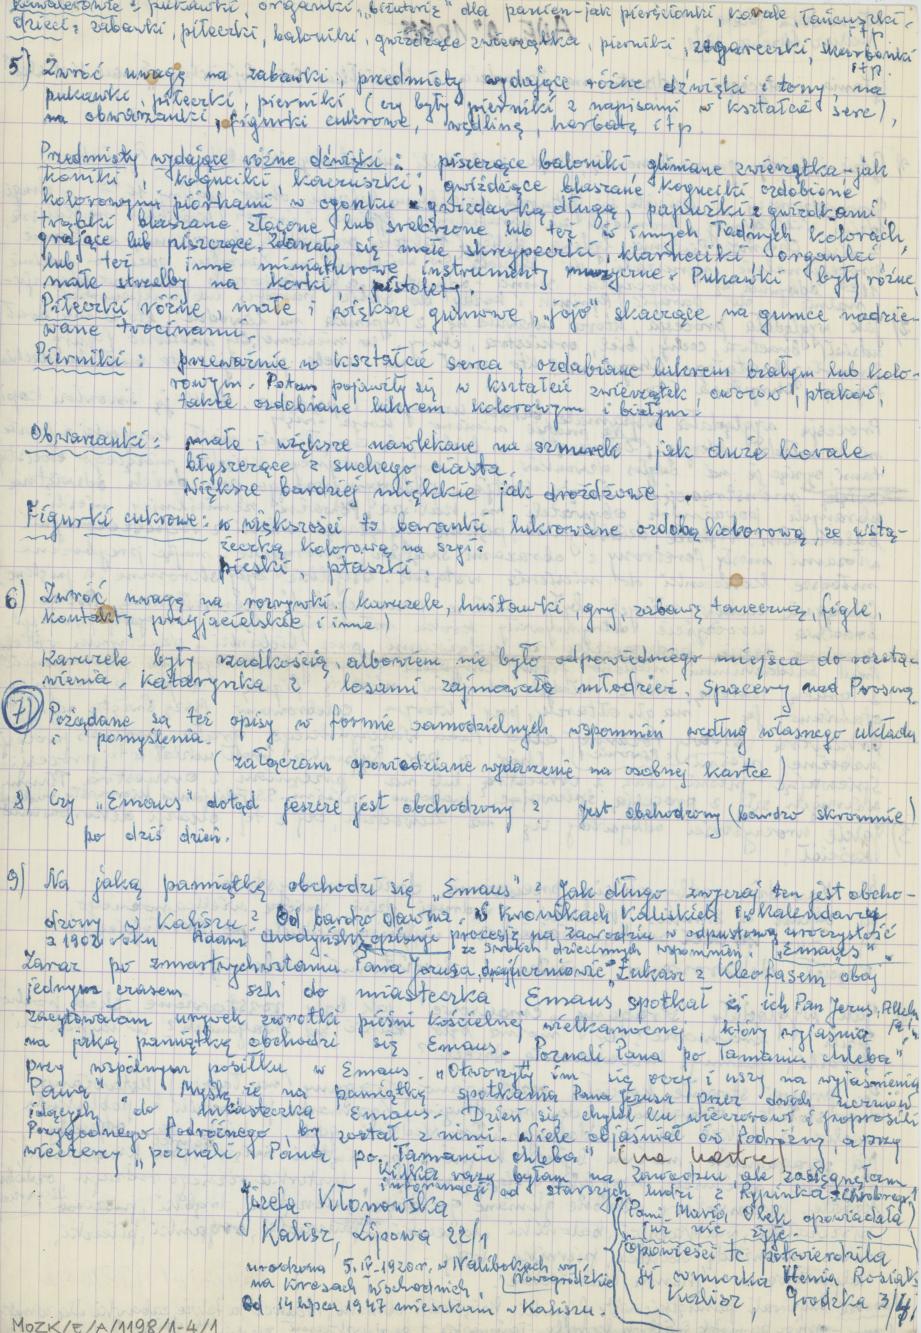 Kawalerowie z pukawki, organki, „biżuterię" dla panien – jak pierścionki, korale, łańcuszki itp.
dzieci: zabawki, piłeczki, baloniki, gwiżdżące zwierzątka, pierniki, zegareczki, skarbonki itp.
5) Zwróć uwagę na zabawki, przedmioty wydające różne dźwięki i tony, na
pukawki, piłeczki, pierniki, (czy były pierniki z napisami w kształcie serc),
na obwarzanki, figurki cukrowe, wędliną, herbatą itp.
Przedmioty wydające różne dźwięki: piszczące baloniki, gliniane zwierzątka – jak
koniki, koguciki, kaczuszki; gwiżdżące blaszane koguciki ozdobione
kolorowymi piórkami w ogonku z gwizdawką długą, papużki z gwizdkami,
trąbki blaszane złocone lub srebrzone lub też w innych ładnych kolorach,
grające lub piszczące. Zdarzały się małe skrzypeczki, klarneciki, organki
lub też inne miniaturowe instrumenty muzyczne. Pukawki były różne,
małe strzelby na korki, pistolety.
Piłeczki różne małe i większe gumowe, „jojo" skaczące na gumce nadzie-
wane trocinami.
Pierniki: przeważnie w kształcie serca, ozdabiane lukrem białym lub kolo-
rowym. Potem pojawiły się w kształcie zwierzątek, owoców, ptaków,
także ozdobiane lukrem kolorowym i białym.
Obwarzanki: małe i większe nawlekane na sznurek jak duże korale
błyszczące z suchego ciasta.
Większe bardziej miękkie jak drożdżowe.
Figurki cukrowe: w większości to baranki lukrowane ozdobą kolorową, ze wstą-
żeczką kolorową na szyi;
pieski, ptaszki.
6) Zwróć uwagę na rozrywki. (karuzele, huśtawki, gry, zabawę taneczną, figle,
kontakty przyjacielskie i inne)
Karuzele były rzadkością, albowiem nie było odpowiedniego miejsca do rozsta-
wienia. Katarynka z losami zajmowała młodzież. Spacery nad Prosną.
7) Pożądane są też opisy w formie samodzielnych wspomnień według własnego układu
i pomyślenia.
(załączam opowiedziane wydarzenie na osobnej kartce)
8) Czy „Emaus" dotąd jeszcze jest obchodzony? Jest obchodzony (bardzo skromnie)
po dziś dzień.
9) Na jaką pamiątkę obchodzi się „Emaus"? Jak długo zwyczaj ten jest obcho-
dzony w Kaliszu? Od bardzo dawna. W Kronikach Kaliskich i w Kalendarzu
z 1902 roku Adam Chodyński opisuje procesję na Zawodziu w odpustową uroczystość
ze swoich dziecinnych wspomnień. „Emaus".
Zaraz po zmartwychwstaniu Pana Jezusa, dwaj uczniowie „Łukasz z Kleofasem obaj
jednym czasem szli do miasteczka Emaus, spotkał się ich Pan Jezus, Alleluja
Zacytowałam urywek zwrotki pieśni kościelnej wielkanocnej, który wyjaśnia
na jaką pamiątkę obchodzi się Emaus. „Poznali Pana po łamaniu chleba"
przy wspólnym posiłku w Emaus. „Otworzyły im się oczy i uszy na wyjaśnienia
Pana" Myślę że na pamiątkę spotkania Pana Jezusa przez dwóch uczniów
idących do miasteczka Emaus. Dzień się chylił ku wieczorowi i poprosili
Przygodnego Podróżnego, by został z nimi. Wiele objaśniał ów Podróżny, a przy
wieczerzy „poznali Pana po łamaniu chleba" (na kartce)
Kilka razy byłam na Zawodziu, ale zasięgnęłam
informacji od starszych ludzi z Rypinka
Józefa Kłonowska
Kalisz, Lipowa 22/1
urodzona 5.IV.1920 r. w Nalibokach woj. Nowogródzkie
na kresach wschodnich.
Od 14 lipca 1947 mieszkam w Kaliszu.
(Pani Maria Olek opowiadała)
już nie żyje.
Opowieści te potwierdziła
jej wnuczka Henia Rosiak
Kalisz, Grodzka 3/4
MOZK/E/A/1198/1-4/1